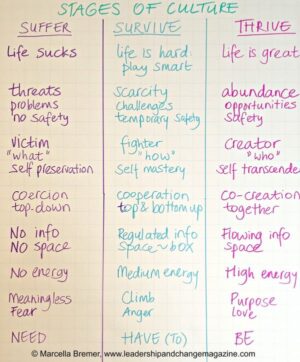 STAGES OF CULTURE
SUFFER SURVIVE THRIVE
Life sucks life is hard life is great
play smart
threats scarcity abundance
problems challenges opportunities
no safety temporary safety safety
Victim fighter Creator
"what" "how" "who"
self preservation Self mastery Self transcende
Coercion cooperation Co-creation
top-down top & bottom up together
No info Regulated info Flowing info
No space Space ~ box space
No energy Medium energy High energy
Meaningless Climb Purpose
Fear Anger love
NEED HAVE (TO) BE
© Marcella Bremer, www.leadershipandchangemagazine.com